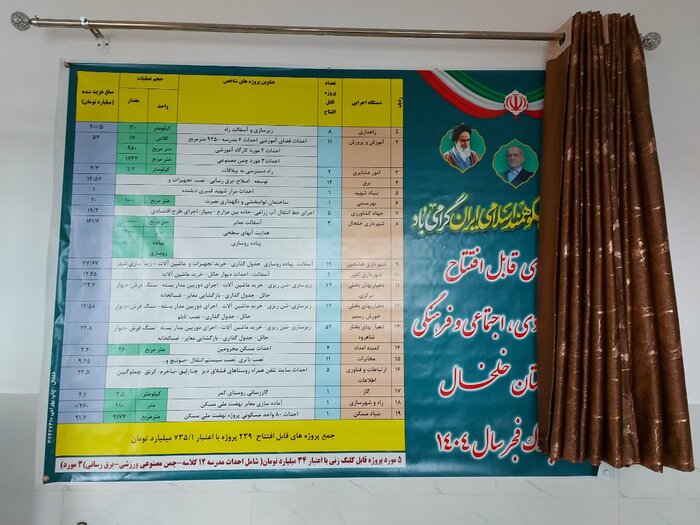 شکوهمند اسلامی ایران گرامی باد
قابل افتتاح
اجتماعی و فرهنگی
خلخال
فجر سال ۱۴۰۴
ردیف
دستگاه اجرایی
تعداد پروژه قابل افتتاح
عناوین پروژه های شاخص
حجم عملیات
واحد
مقدار
مبلغ هزینه شده (میلیارد تومان)
۱ راهداری ۸ زیرسازی و آسفالت راه کیلومتر ۳۰ ۲۰۰/۵
۲ آموزش و پرورش ۱۱ احداث فضای آموزشی احداث ۶ مدرسه -۹۲۵ مترمربع کلاس ۱۷ ۵۷
احداث ۲ مورد کارگاه آموزشی متر مربع ۹۸۰
احداث ۳ مورد چمن مصنوعی متر مربع ۱۶۳۲
۳ امور عشایری ۲ راه دسترسی به ییلاقات کیلومتر ۱/۷ ۲/۳
۴ برق ۱۲ توسعه - اصلاح-برق رسانی- نصب تجهیزات و ۱۲/۵۷
۵ بنیاد شهید ۱ احداث مزار شهید قنبری دیلمده ۱
۶ بهزیستی ۱ ساختمان توانبخشی و نگهداری نصرت متر مربع ۱۰۰۰ ۲۰
۷ جهاد کشاورزی ۵ اجرای خط انتقال آب زراعی -جاده بین مزارع -پمپاژ-اجرای طرح اقتصادی ۱۹/۳
۸ شهرداری خلخال ۳ آسفالت معابر متر مربع ۱۶۱/۶
هدایت آبهای سطحی
پیاده روسازی پیاده روسازی
۹ شهرداری هشجین ۱۹ آسفالت- پیاده روسازی- جدول گذاری- خرید تجهیزات و ماشین آلات - زیبا سازی شهر ۲۷/۶۷
۱۰ شهرداری کلور ۲ آسفالت- احداث دیوار حائل- خرید ماشین آلات ۱۲.۴۵
۱۱ دهیاریهای بخش مرکزی ۷۴ زیرسازی-شن ریزی- خرید ماشین آلات - اجرای دوربین مدار بسته - سنگ فرش-دیوار حائل- جدول گذاری- بازگشایی معابر- غسالخانه
۱۲ دهیاریهای بخش خورش رستم زیرسازی-شن ریزی- خرید ماشین آلات - اجرای دوربین مدار بسته - سنگ فرش-دیوار حائل- جدول گذاری- نصب تابلو ۱۲/۵۸
۱۳ دهیاریهای بخش شاهرود ۵۲ زیرسازی-شن ریزی- خرید ماشین آلات - اجرای دوربین مدار بسته - سنگ فرش-دیوار حائل- جدول گذاری- بازگشایی معابر- غسالخانه ۲۲.۸
۱۴ کمیته امداد ۴ احداث مسکن محرومین متر مربع ۲۶۰ ۳.۴
۱۵ مخابرات ۱۱ نصب باتری -نصب سیستم انتقال -سوئیچ و.. ۹.۴۵
۱۶ ارتباطات و فناوری اطلاعات ۵ احداث سایت تلفن همراه روستاهای
۱۷ گاز ۱ گازرسانی روستای کمر کیلومتر ۲.۵ ۴.۱
۱۸ راه و شهرسازی ۱ آماده سازی معابر نهضت ملی مسکن متر ۱۸۰ ۰/۴۶۰
۱۹ بنیاد مسکن ۱ احداث ۸۰ واحد مسکونی پروژه نهضت ملی مسکن متر مربع ۹۱۷۴ ۹۱.۷
جمع پروژه های قابل افتتاح ۲۳۹ پروژه با اعتبار ۷۳۵/۱ میلیارد تومان
۵ مورد پروژه قابل کلنگ زنی با اعتبار ۳۴ میلیارد تومان( شامل احداث مدرسه ۱۲ کلاسه-چمن مصنوعی ورزشی-برق رسانی) ۳ مورد)